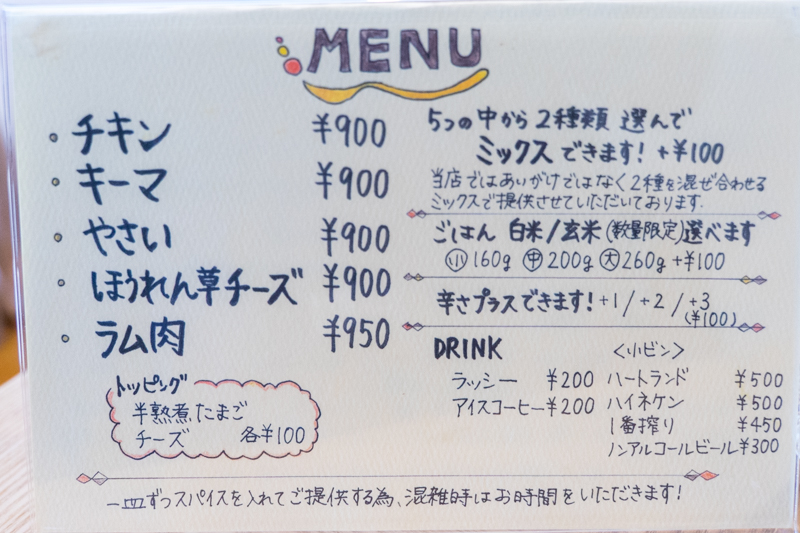 MENU
・チキン ¥900
・キーマ ¥900
・やさい ¥900
・ほうれん草チーズ ¥900
・ラム肉 ¥950
トッピング
半熟煮たまご
チーズ 各¥100
5つの中から2種類 選んで
ミックスできます! +¥100
当店ではあいがけではなく2種を混ぜ合わせる
ミックスで提供させていただいております.
ごはん 白米/玄米(数量限定)選べます
小160g 中200g 大260g+¥100
辛さプラスできます!+1/+2/+3
(¥100)
DRINK
ラッシー ¥200
アイスコーヒー ¥200
<小ビン>
ハートランド ¥500
ハイネケン ¥500
1番搾り ¥450
ノンアルコールビール ¥300
一皿ずつスパイスを入れてご提供する為、混雑時はお時間をいただきます!